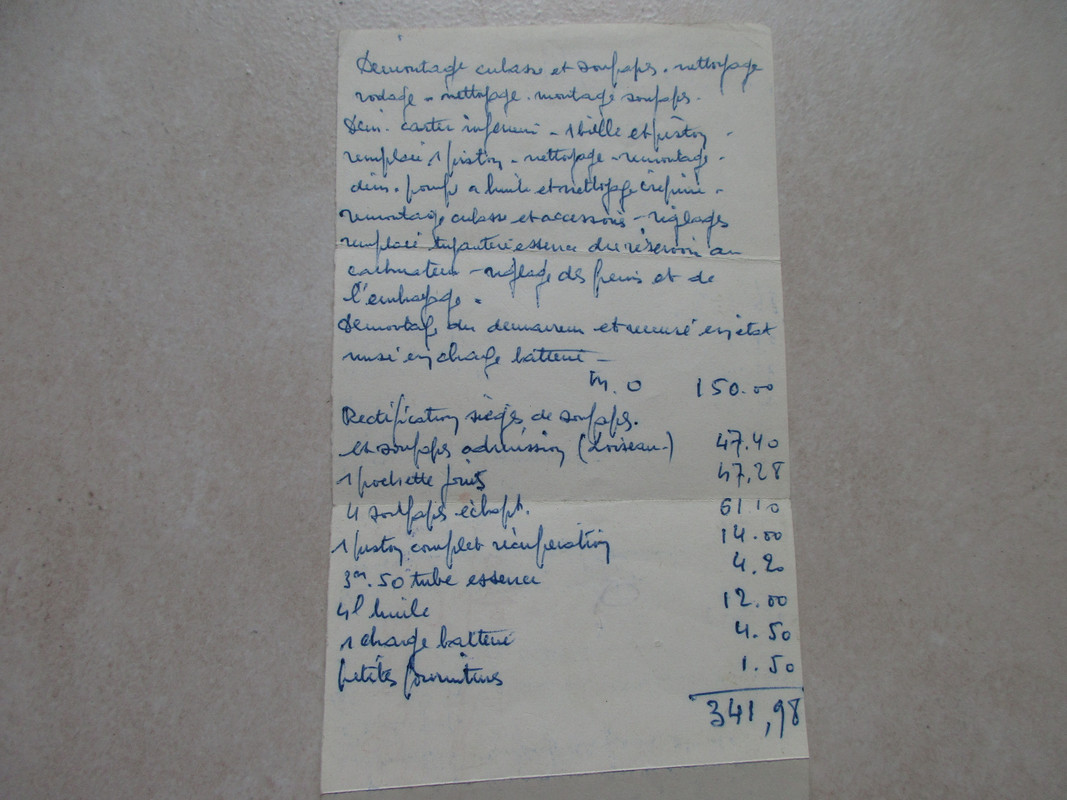 Demontage culasse et soupapes. nettoyage
rodage - nettoyage. montage soupapes.
Dém. carter inférieur - 1 bielle et piston -
remplacé 1 piston - nettoyage - remontage -
dém. pompe a huile et nettoyage crépine -
remontage culasse et accessoires - réglages
remplacé tuyauterie essence du réservoir au
carburateur - réglage des freins et de
l'embrayage.
Demontage du demarreur et remise en état
mise en charge batterie -
M. O 150.00
Rectification sièges de soupapes.
et soupapes admission (Loiseau) 47.40
1 pochette joints 47,28
4 soupapes échapt. 61 10
1 piston complet récupération 14.00
3m.50 tube essence 4.20
4l huile 12.00
1 charge batterie 4.50
petites fournitures 1.50
341,98